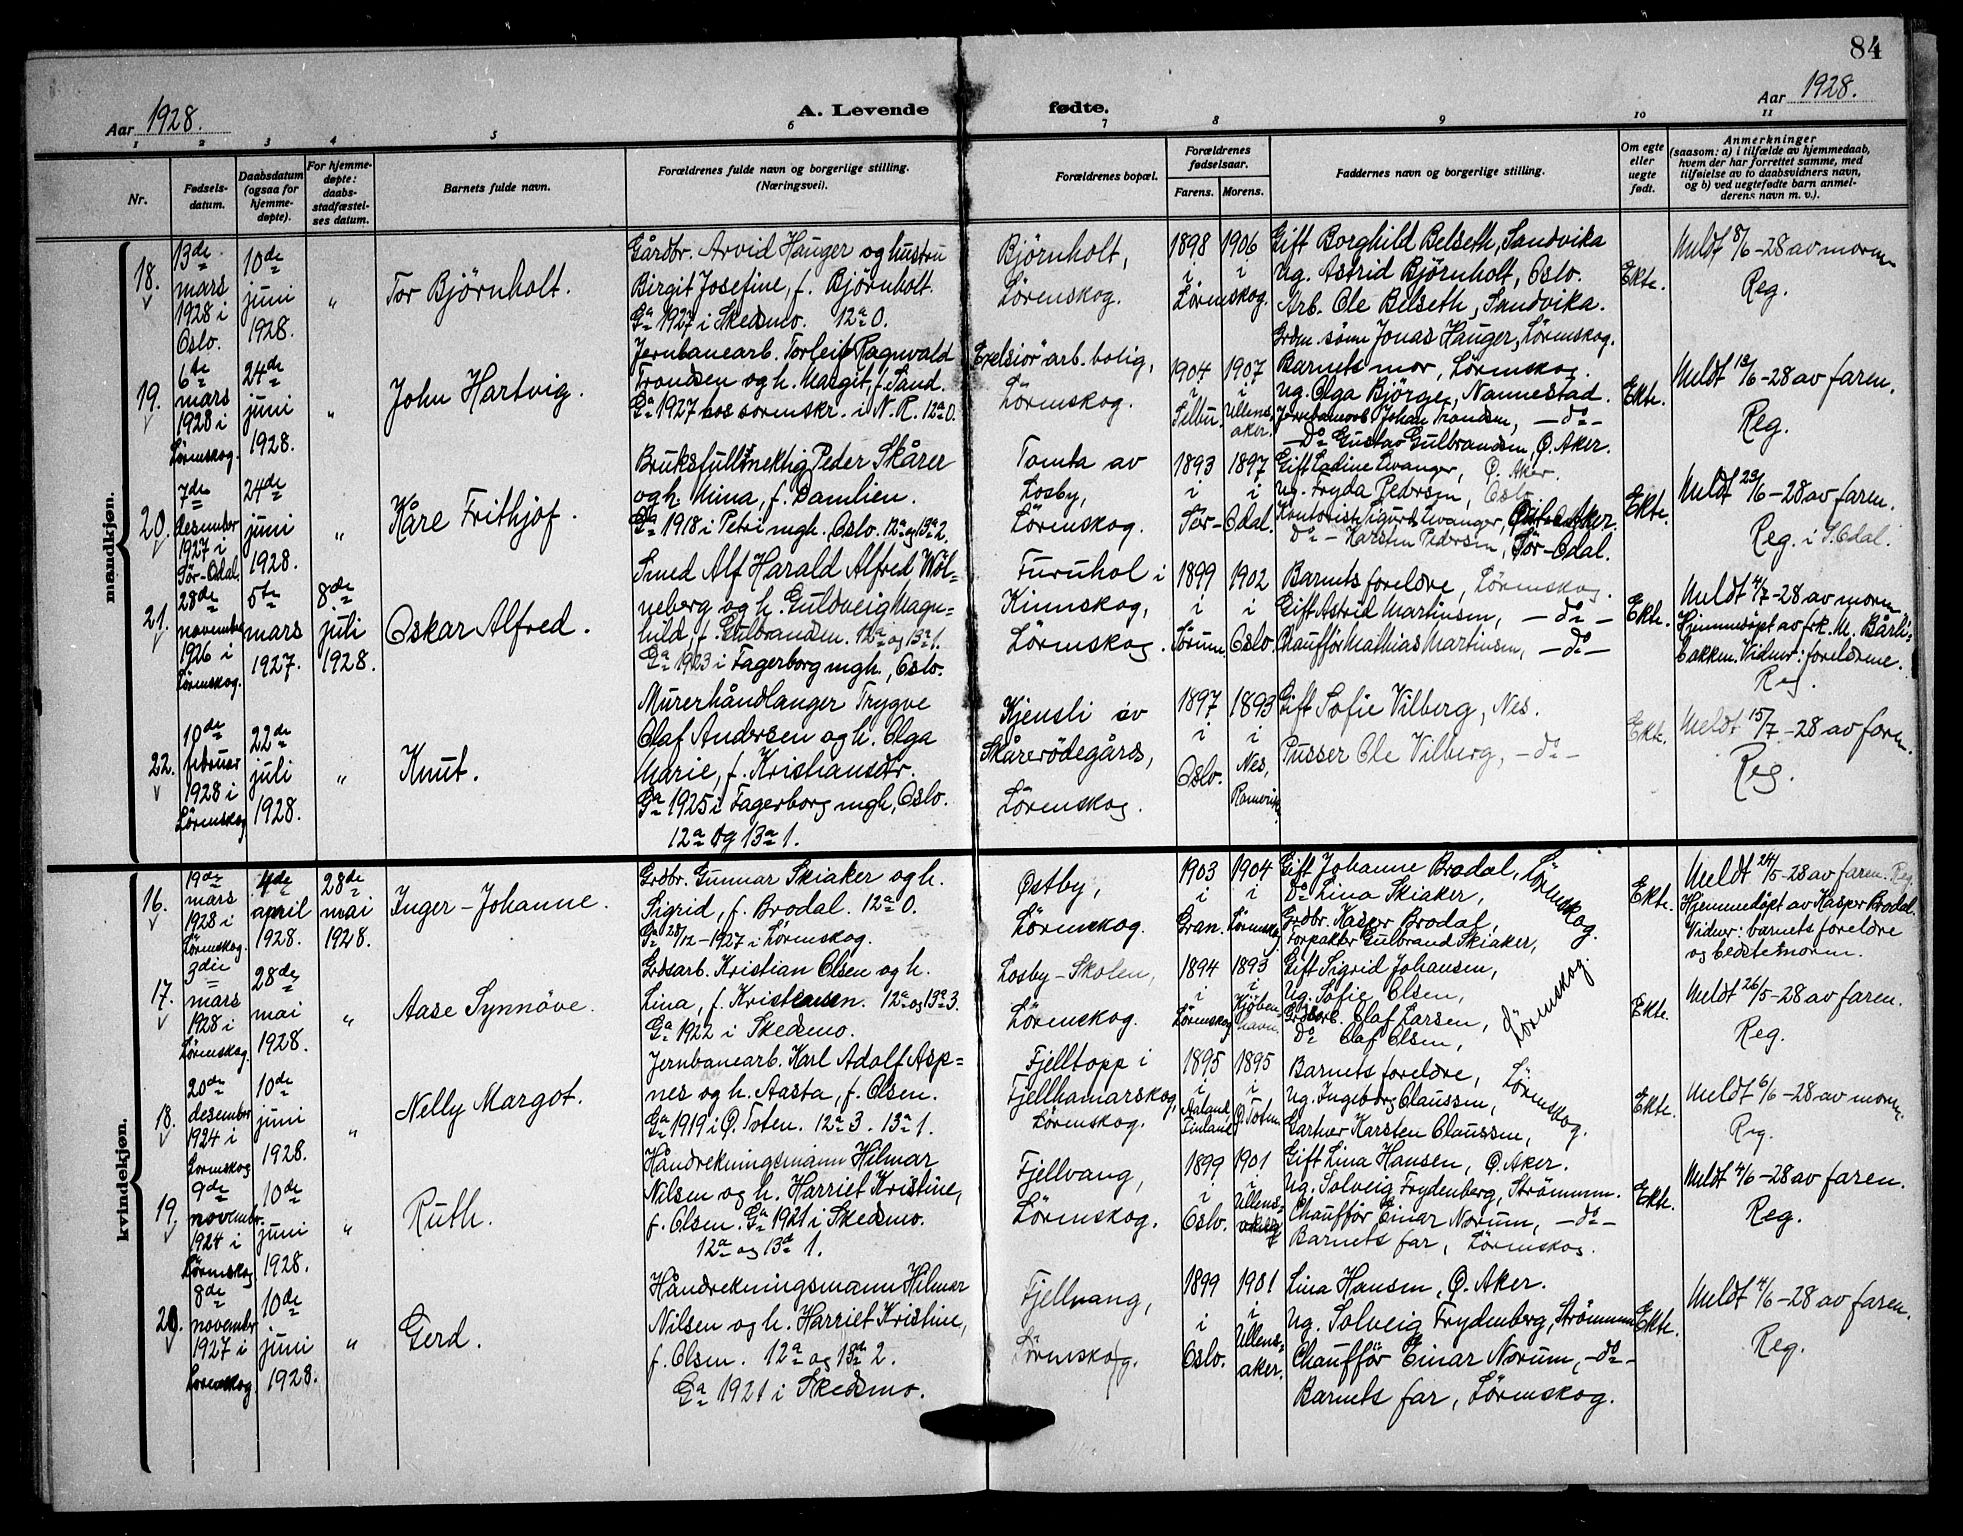 84
Aar 1928.
A. Levende fødte.
Aar 1928.
1 2 3 4 5 6 7 8 9 10 11
Nr.
Fødsels-
datum.
Daabsdatum
(ogsaa for
hjemme-
døpte).
For hjemme-
døpte:
daabs-
stadfæstel-
ses datum.
Barnets fulde navn.
Forældrenes fulde navn og borgerlige stilling.
(Næringsvei).
Forældrenes bopæl.
Forældrenes
fødselsaar.
Farens. Morens.
Faddernes navn og borgerlige stilling.
Om egte
eller
uegte
født.
Anmerkninger
(saasom: a) i tilfælde av hjemmedaab,
hvem der har forrettet samme, med
tilføielse av to daabsvidners navn,
og b) ved uegtefødte barn anmel-
derens navn m. v.).
mandkjøn.
18.
13de
mars
1928 i
Oslo.
10de
juni
1928.
"
Tor Bjørnholt.
Gårdbr. Arvid Hauger og hustru
Birgit Josefine, f. Bjørnholt.
Ga 1927 i Skedsmo. 12a 0.
Bjørnholt,
Lørenskog.
1898 1906
i i
Lørenskog.
Gift Borghild Belseth, Sandvika
Ug. Astrid Bjørnholt, Oslo.
Arb. Ole Belseth, Sandvika.
Grdm. sønn Jonas Hauger, Lørenskog.
Ekte.
Meldt 8/6-28 av moren
Reg.
19.
6te
mars
1928 i
Lørenskog.
24de
juni
1928.
"
John Hartvig.
Jernbanearb. Torleif Ragnvald
Trondsen og h. Margit, f. Sand.
Ga 1927 hos sorenskr. i N. R. 12a 0.
"Exelsior" arb. bolig,
Lørenskog.
1904 1907
i i
Selbu. Ullens-
aker.
Barnets mor, Lørenskog.
Ug. Olga Bjørge, Nannestad.
Jernbanearb. Johan Trondsen, -do-
-Do Gustav Gulbrandsen, Ø. Aker.
Ekte.
Meldt 12/6-28 av faren.
Reg.
20.
7de
desember
1927 i
Sør-Odal.
24de
juni
1928.
"
Kåre Frithjof.
Bruksfullmektig Peder Skårer
og h. Mina, f. Damlien.
Ga 1918 i Petri mgh. Oslo. 12a og 13a 2.
Tomta av
Losby,
Lørenskog.
1893 1897
i i
Sør-Odal.
Ug. Fryda Pedersen, Oslo
Do - Karsten Pedersen, Sør-Odal.
Ekte.
Meldt 29/6-28 av faren.
Reg. i S. Odal.
21.
28de
november
1926 i
Lørenskog.
5te
mars
1927.
8de
juli
1928.
Oskar Alfred.
Smed Alf Harald Alfred Wöl-
neberg og h. Guldveig Magn-
hild, f. Gulbrandsen. 12a og 13a 1.
Ga 1923 i Fagerborg mgh., Oslo.
Furuhol i
Kinnskog,
Lørenskog.
1899 1902
i i
Sørum. Oslo.
Barnets foreldre, Lørenskog.
Gift Astrid Martinsen, -do-
Chaufför Mathias Martinsen, -do-
Ekte.
Meldt 4/7-28 av moren
Hjemmedøpt av frk. M. Bårli-
bakken. Vidner: foreldrene.
Reg.
22.
10de
februar
1928 i
Lørenskog
22de
juli
1928.
"
Knut.
Murerhåndlanger Trygve
Olaf Andersen og h. Olga
Marie, f. Kristiansdtr.
Ga 1925 i Fagerborg mgh, Oslo.
12a og 13a 1.
Kjensli av
Skårerødegård,
Lørenskog.
1897 1893
i i
Oslo. Nes,
Romerike.
Gift Sofie Vilberg, Nes.
Pusser Ole Vilberg, -do-
Ekte.
Meldt 15/7-28 av faren.
Reg.
kvindekjøn.
16.
19de
mars
1928 i
Lørenskog.
4de
april
1928.
28de
mai
1928.
Inger-Johanne.
Grdbr. Gunnar Skiaker og h.
Sigrid, f. Brodal. 12a 0.
Ga 28/12-1927 i Lørenskog.
Østby,
Lørenskog.
1903 1904
i i
Gran. Lørenskog
Gift Johanne Brodal,
Do Lina Skiaker,
Grdbr. Kasper Brodal,
Forpakter Gulbrand Skiaker,
Lørenskog.
Ekte.
Meldt 24/5-28 av faren. Reg.
Hjemmedøpt av Kasper Brodal.
Vidner: barnets foreldre
og bestemoren.
17.
3die
mars
1928 i
Lørenskog.
28de
mai
1928.
"
Aase Synnöve.
Grdsarb. Kristian Olsen og h.
Lina, f. Kristensen. 12a og 13a 3.
Ga 1922 i Skedsmo.
Losby-Skolen,
Lørenskog.
1894 1893
i i
Lørenskog Kjøben-
havn.
Gift Sigrid Johansen,
Ug. Sofie Olsen,
Grdsarb. Olaf Larsen,
Do Olaf Olsen,
Lørenskog.
Ekte.
Meldt 26/5-28 av faren.
Reg.
18.
20de
desember
1924 i
Lørenskog
10de
juni
1928.
"
Nelly Margot.
Jernbanearb. Karl Adolf Asp-
nes og h. Aasta, f. Olsen.
Ga 1919 i Ø. Toten. 12a 3. 13a 1.
Fjelltopp i
Fjellhamarskog,
Lørenskog.
1895 1895
i i
Aaland Ø. Toten
Finland
Barnets foreldre,
Ug. Ingeborg Claussen,
Gartner Karsten Claussen,
Lørenskog.
Ekte.
Meldt 6/6-28 av moren.
Reg.
19.
9de
novembr.
1924 i
Lørenskog
10de
juni
1928.
"
Ruth.
Håndrekningsmann Hilmar
Nilsen og h. Harriet Kristine,
f. Olsen. Ga 1921 i Skedsmo.
12a og 13a 1.
Fjellvang,
Lørenskog.
1899 1901
i i
Oslo. Ullens-
aker
Gift Lina Hansen, Ø. Aker.
Ug. Solveig Frydenberg, Strömmen.
Chaufför Einar Norum, -do-
Barnets far, Lørenskog.
Ekte.
Meldt 4/6-28 av faren.
Reg.
20.
8de
november
1927 i
Lørenskog
10de
juni
1928.
"
Gerd.
Håndrekningsmann Hilmar
Nilsen og h. Harriet Kristine,
f. Olsen. 12a og 13a 2.
Ga 1921 i Skedsmo.
Fjellvang,
Lørenskog.
1899 1901
i i
Oslo. Ullens-
aker.
Lina Hansen, Ø. Aker.
Ug. Solveig Frydenberg, Strömmen
Chaufför Einar Norum, -do-
Barnets far, Lørenskog.
Ekte.
Meldt 4/6-28 av faren.
Reg.